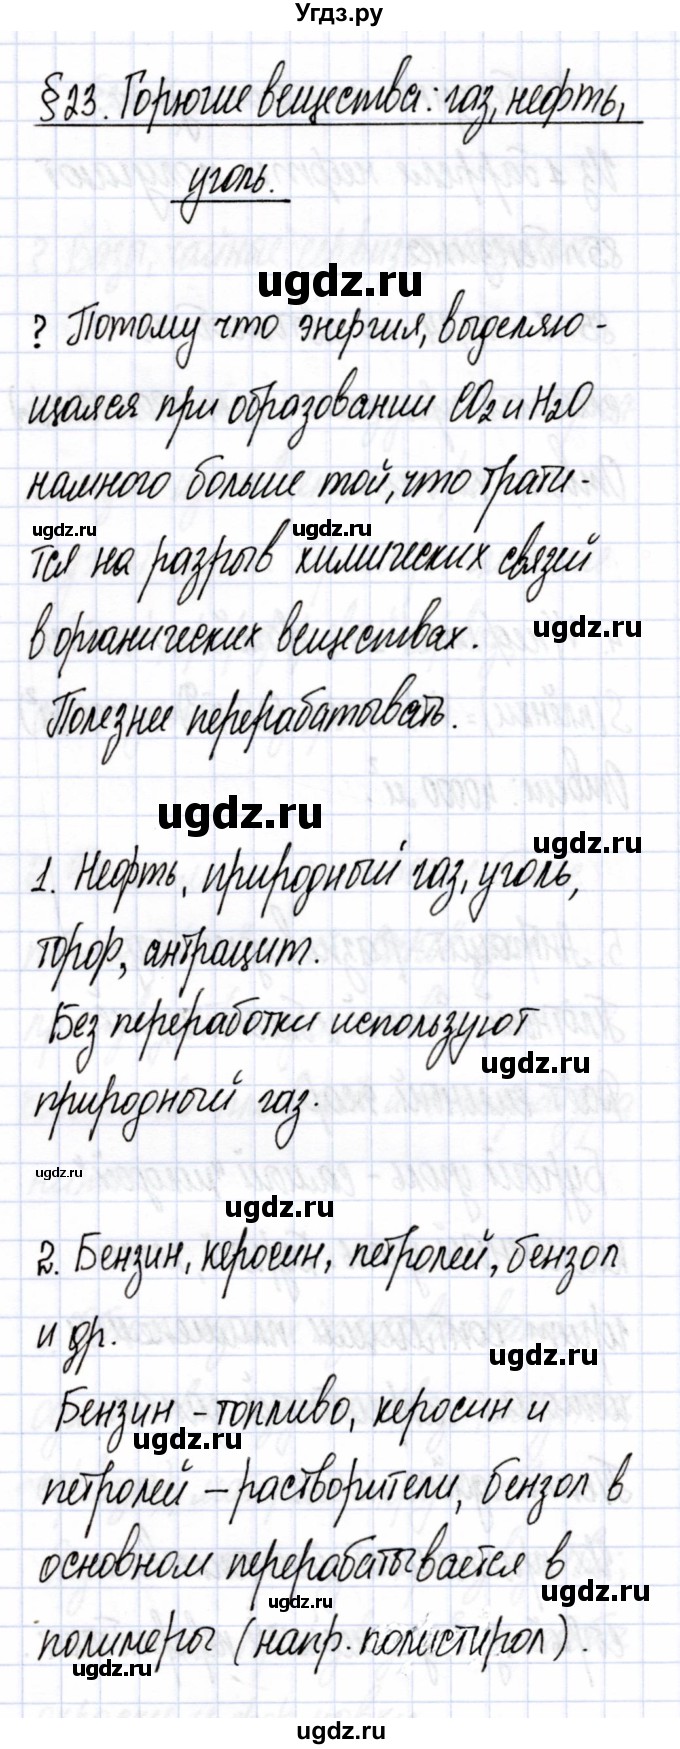 Угдз.ру
§23. Горючие вещества: газ, нефть,
уголь.
ugdz.ru
? Потому что энергия, выделяю-
щаяся при образовании CO2 и H2O
намного больше той, что трати-
ugdz.ru ugdz.ru
тся на разрыв химических связей
ugdz.ru
в органических веществах.
Полезнее перерабатывать.
ugdz.ru
ugdz.ru
1. Нефть, природный газ, уголь,
торф, антрацит.
Без переработки используют
ugdz.ru
природный газ.
ugdz.ru
ugdz.ru
2. Бензин, керосин, петролей, бензол
и др.
ugdz.ru
Бензин - топливо, керосин и
ugdz.ru
петролей - растворители, бензол в
основном перерабатывается в
ugdz.ru
ugdz.ru
полимеры (напр. полистирол).
ugdz.ru
ugdz.ru